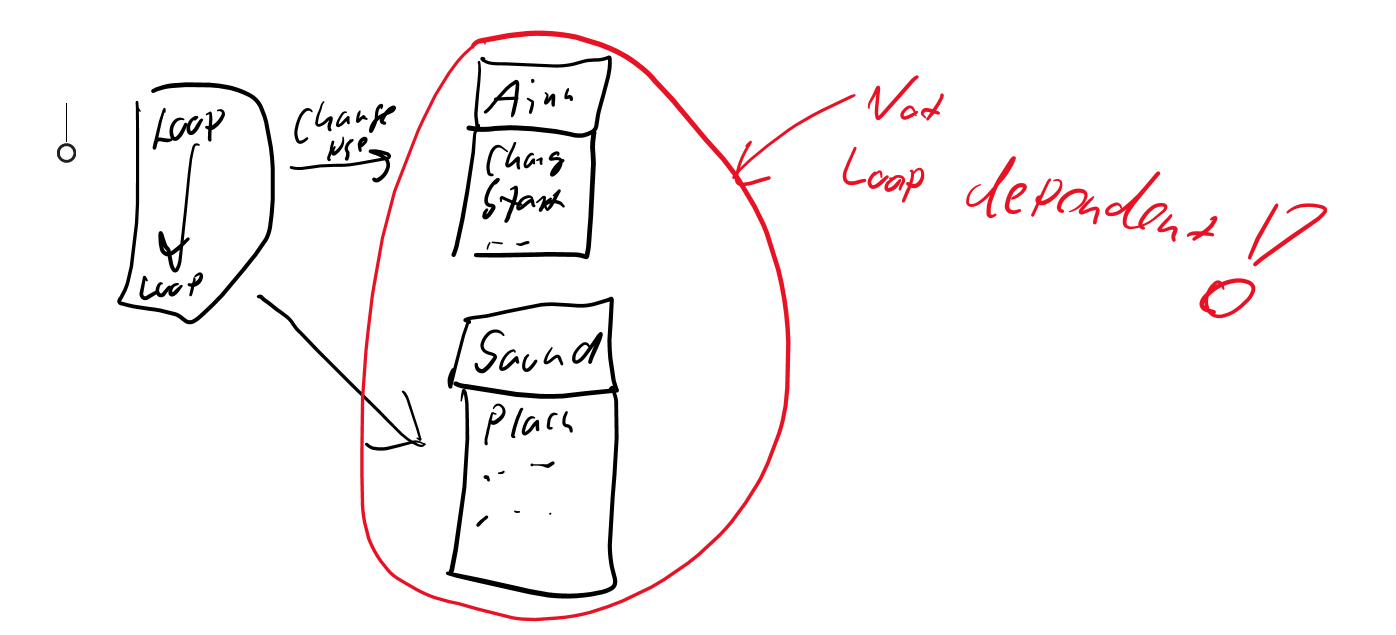 Loop
Loop
Change
Aim
Chang
Start
Sound
Not
Loop dependent !?